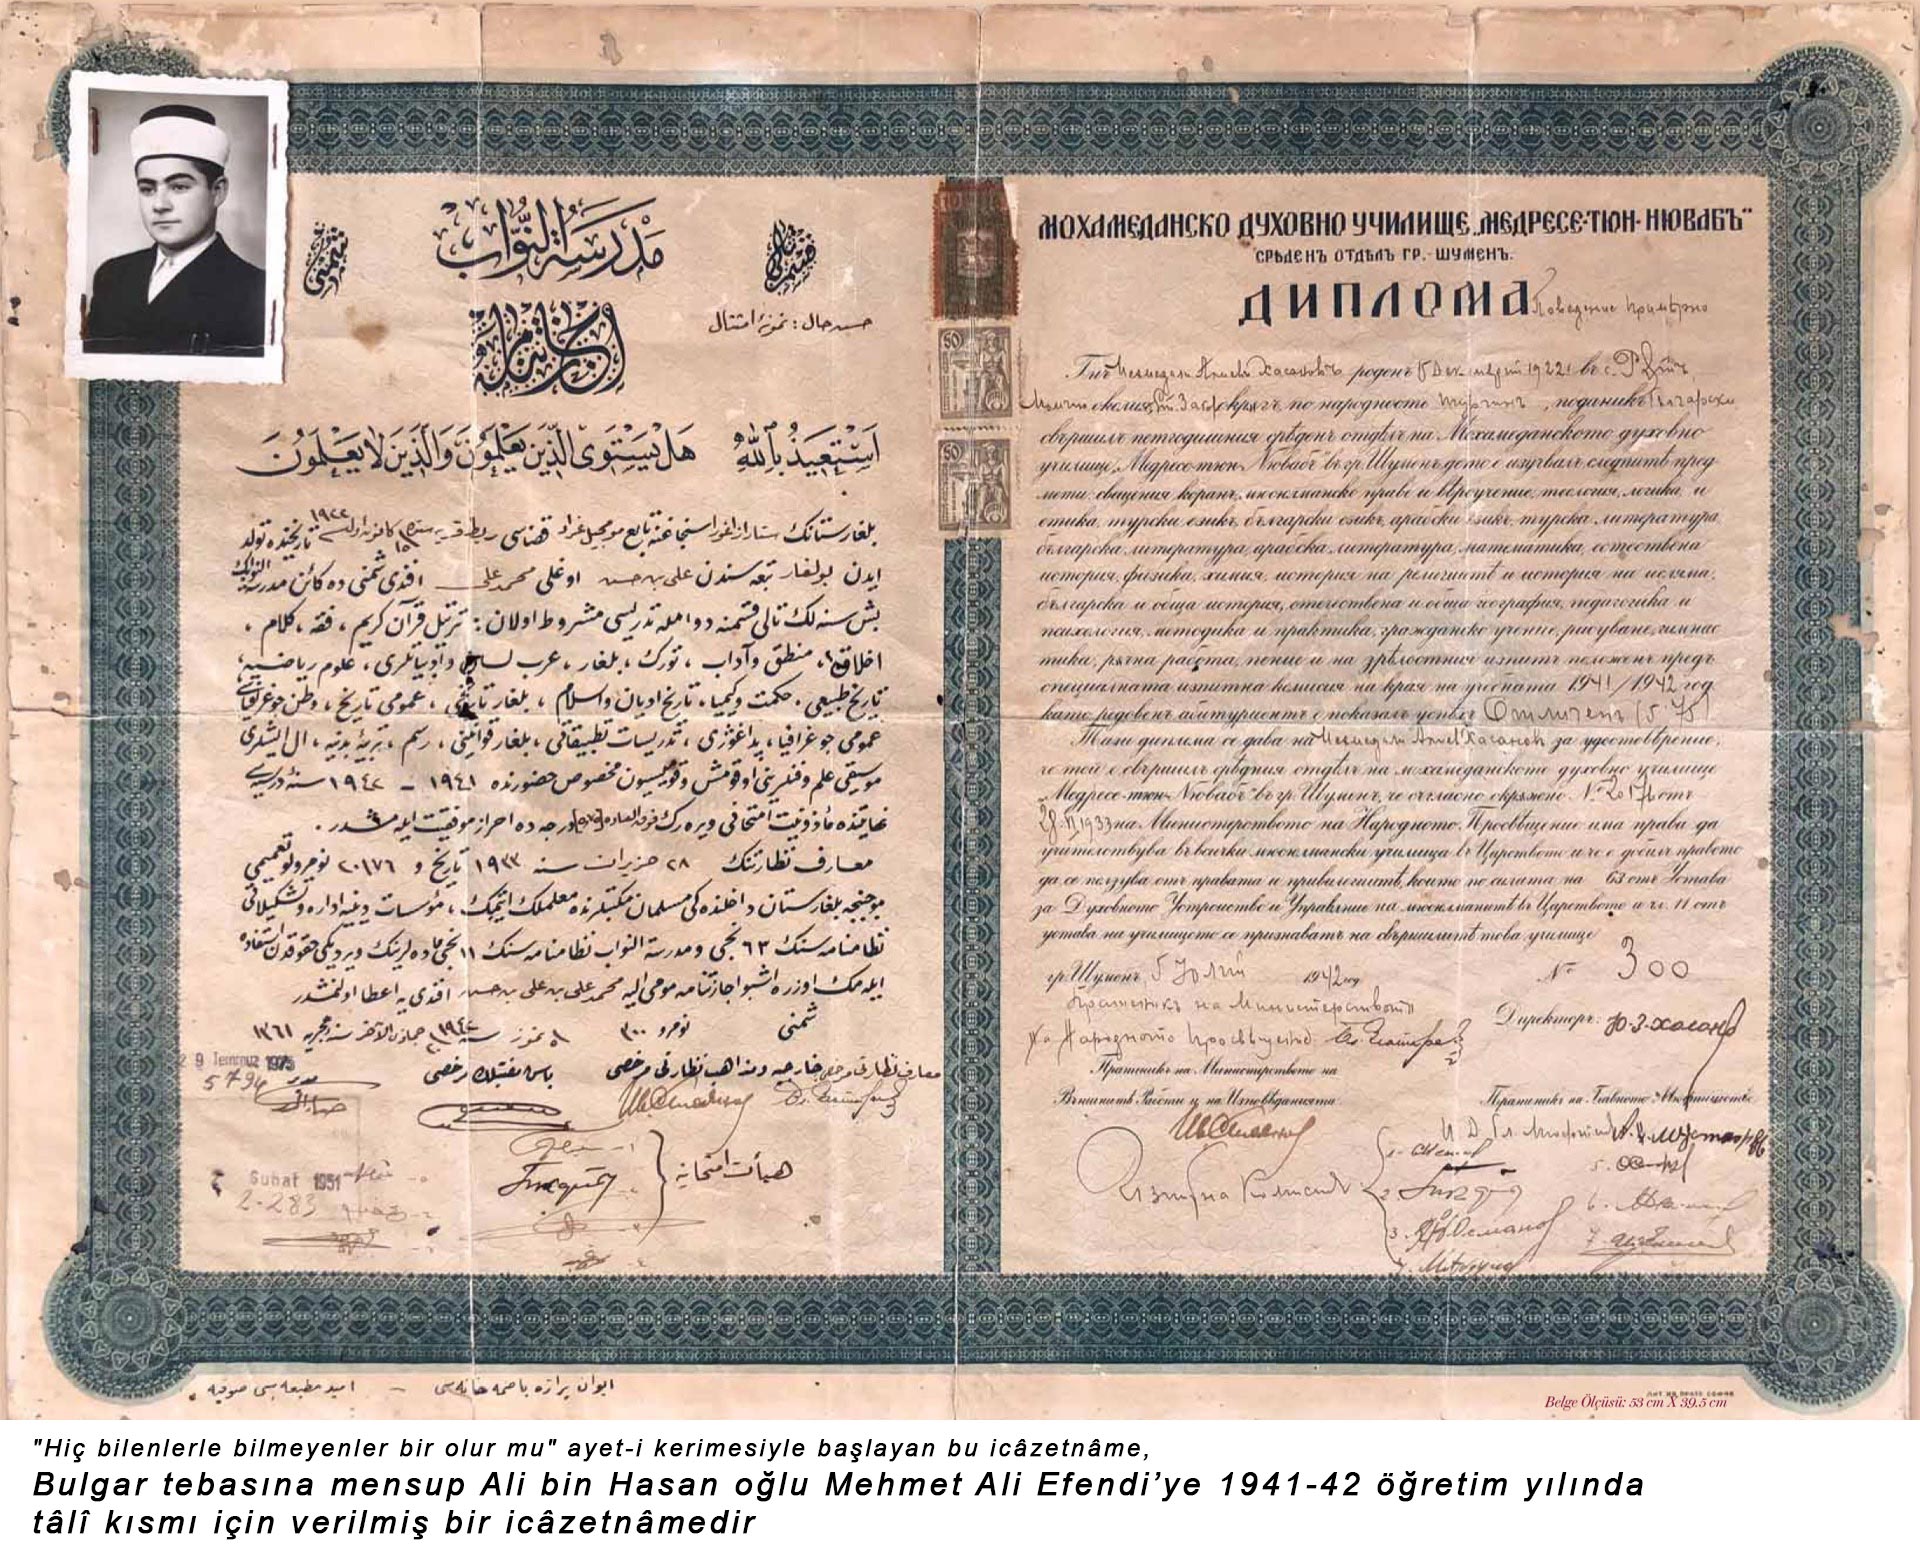 مدرسة النواب
شمنى
قسم تالى
اجازتنامه
حسن حال : نمونۀ امتثال
استعيذ بالله هل يستوى الذين يعلمون والذين لا يعلمون
بلغارستانك ستارازاغورا سنجاغنه تابع موجيل غراد قضاسى ١٩٢٢ تاريخنده تولد
ايدن بولغار تبعه سندن على بن حسن اوغلى محمد على افندى شمنى ده كائن مدرسة النوابك
بش سنه لك تالى قسمنه دوامله تدريسى مشروط اولان : ترتيل قرآن كريم ، فقه ، كلام ،
اخلاق ، منطق وآداب ، تورك ، بلغار ، عرب لسان وادبياتلرى ، علوم رياضيه ،
تاريخ طبيعى ، حكمت وكيميا ، تاريخ اديان واسلام ، بلغار تاريخى ، عمومى تاريخ ، وطن جوغرافياسى
عمومى جوغرافيا ، پداغوژى ، تدريسات تطبيقاتى ، بلغار قوانينى ، رسم ، تربيۀ بدنيه ، ال ايشلرى
موسيقى علم وفنلرينى اوقومش وقوميسيون مخصوص حضورنده ١٩٤١ – ١٩٤٢ سنۀ درسيه سى
نهايتنده مأذونيت امتحانى ويره رك فوق العاده درجه ده احراز موفقيت ايله مشدر .
معارف نظارتنك ٢٨ حزيران سنه ١٩٣٣ تاريخ و ٢٠١٧٦ نومرولو تعميمى
موجبنجه بلغارستان داخلنده كى مسلمان مكتبلرنده معلملك ايتمك ، مؤسسات دينيه اداره وتشكيلاتى
نظامنامه سنك ٦٣ نجى ومدرسة النواب نظامنامه سنك ١١ نجى ماده لرينك ويرديكى حقوقدن استفاده
ايله مك اوزره اشبو اجازتنامه مومى اليه محمد على بن على بن حسن افندى يه اعطا اولنمشدر
شمنى نومرو ٣٠٠ ٥ تموز سنه ١٩٤٢ جماذى الآخر سنۀ هجريه ١٣٦١
معارف نظارتى مرخصى خارجيه ومذاهب نظارتى مرخصى باش مفتيلك مرخصى مدير
29 Temmuz 1975
5794
هيأت امتحانيه
Şubat 1951
2-283
اميد مطبعه سى صوفيه
МОХАМЕДАНСКО ДУХОВНО УЧИЛИЩЕ „МЕДРЕСЕ-ТЮН-НЮВАБЪ“
СРѢДЕНЪ ОТДѢЛЪ ГР. - ШУМЕНЪ.
ДИПЛОМА
Поведение примѣрно
10
50
50
Г-нъ Мехмедали Алиевъ Хасановъ роденъ 5 Декемврий 1922 г. въ с.
околия Ст. Заг. окрѫгъ, по народность турчинъ, поданикъ български
свършилъ петгодишния срѣденъ отдѣлъ на Мохамеданското духовно
училище „Медресе-тюн-Нювабъ“ въ гр. Шуменъ, дето е изучвалъ следнитѣ пред-
мети: свещения коранъ, мюсюлманско право и вѣроучение, теология, логика и
етика, турски езикъ, български езикъ, арабски езикъ, турска литература,
българска литература, арабска литература, математика, естествена
история, физика, химия, история на религиитѣ и история на исляма,
българска и обща история, отечествена и обща география, педагогика и
психология, методика и практика, гражданско учение, рисуване, гимнас
тика, рѫчна работа, пение и на зрѣлостния изпитъ положенъ предъ
специалната изпитна комисия на края на учебната 1941/1942 год.
като редовенъ абитуриентъ е показалъ успѣхъ Отличенъ (5·75)
Тази диплома се дава на Мехмедали Алиевъ Хасановъ за удостовѣрение,
че той е свършилъ срѣдния отдѣлъ на мохамеданското духовно училище
„Медресе-тюн-Нювабъ“ въ гр. Шуменъ, че съгласно окрѫжно № 20176 отъ
28.VI.1933 на Министерството на Народното Просвѣщение има право да
учителствува въ всички мюсюлмански училища въ Царството и че е добилъ правото
да се ползува отъ правата и привилегиитѣ, които по силата на 63 отъ Устава
за Духовното Устройство и Управление на мюсюлманитѣ въ Царството и чл. 11 отъ
устава на училището се признаватъ на свършилитѣ това училище
гр. Шуменъ, 5 Юлий 1942 год. № 300
Пратеникъ на Министерството
на Народното Просвѣщение
Директоръ: Ю. З. Хасановъ
Пратеникъ на Министерството на
Външнитѣ Работи и на Изповѣданията
Пратеникъ на Главното Мюфтийство
Изпитна Комисия
"Hiç bilenlerle bilmeyenler bir olur mu" ayet-i kerimesiyle başlayan bu icâzetnâme,
Bulgar tebasına mensup Ali bin Hasan oğlu Mehmet Ali Efendi’ye 1941-42 öğretim yılında
tâlî kısmı için verilmiş bir icâzetnâmedir
Belge Ölçüsü: 53 cm X 39.5 cm